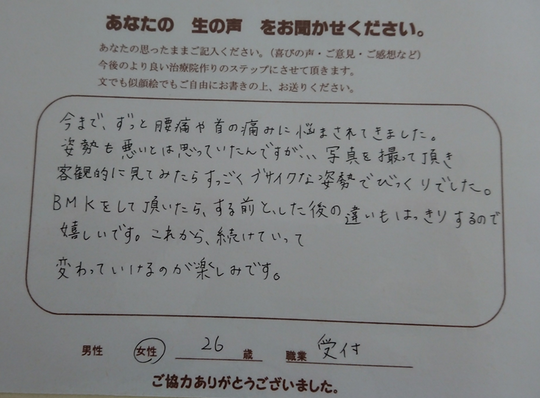 あなたの 生の声 をお聞かせください。
あなたの思ったままご記入ください。（喜びの声・ご意見・ご感想など）
今後のより良い治療院作りのステップにさせて頂きます。
文でも似顔絵でもご自由にお書きの上、お送りください。
今まで、ずっと腰痛や首の痛みに悩まされてきました。
姿勢も悪いとは思っていたんですが、、、写真を撮って頂き
客観的に見てみたらすっごくブサイクな姿勢でびっくりでした。
BMKをして頂いたら、する前と、した後の違いもはっきりするので
嬉しいです。これから、続けていって
変わっていけるのが楽しみです。
男性 女性 26 歳 職業 受付
ご協力ありがとうございました。